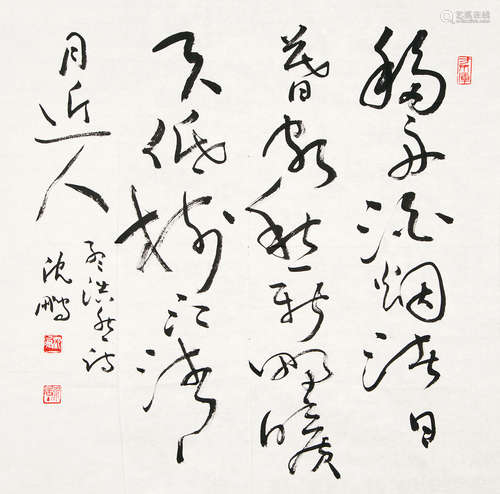 移舟泊烟渚日
暮客愁新野旷
天低树江清
月近人
孟浩然诗
沈鹏